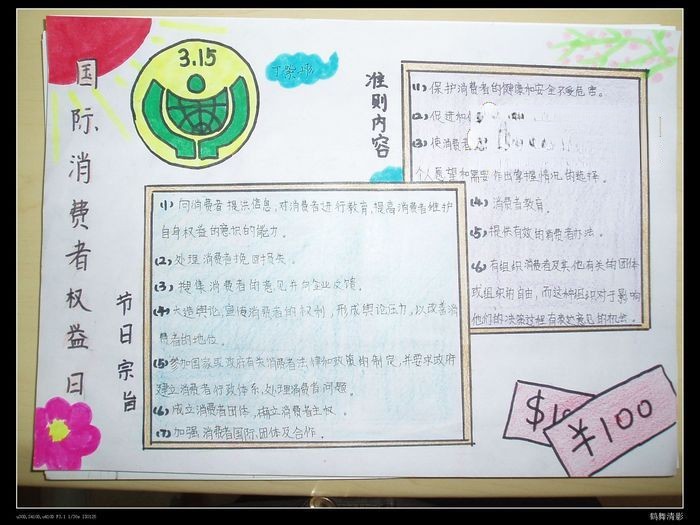 国际消费者权益日
3.15
准则内容
(1) 保护消费者的健康和安全不受危害。
(2) 促进和
(3) 使消费者
个人愿望和需要作出掌握情况的选择。
(4) 消费者教育。
(5) 提供有效的消费者办法。
(6) 有组织消费者及其他有关的团体
或组织的自由，而这种组织对于影响
他们的决策过程有表达意见的机会。
节日宗旨
(1) 向消费者提供信息，对消费者进行教育，提高消费者维护
自身权益的意识的能力。
(2) 处理消费者挽回损失。
(3) 搜集消费者的意见并向企业反馈。
(4) 大造舆论，宣传消费者的权利，形成舆论压力，以改善消
费者的地位。
(5) 参加国家或政府有关消费者法律和政策的制定，并要求政府
建立消费者行政体系，处理消费者问题。
(6) 成立消费者团体，确立消费者主权。
(7) 加强消费者国际团体及合作。
$10
¥100
鹤舞清影